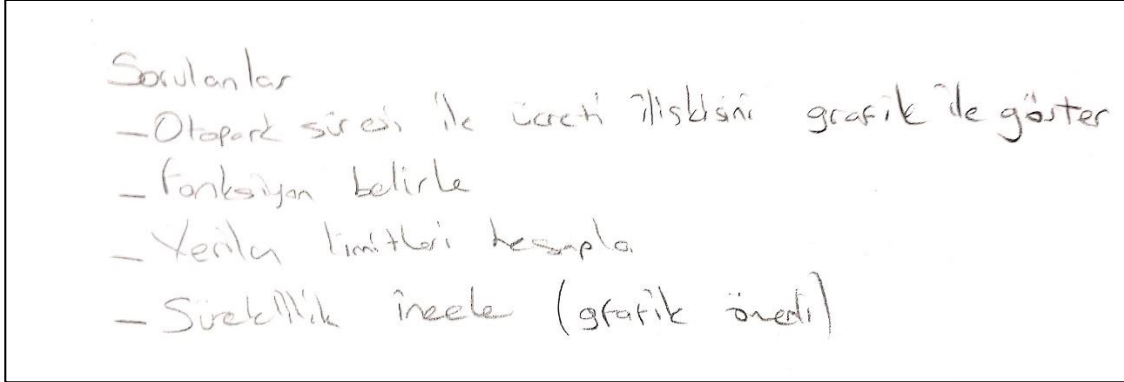 Sorulanlar
- Otopark süresi ile ücreti ilişkisini grafik ile göster
- Fonksiyon belirle
- Verilen limitleri hesapla
- Süreklilik incele (grafik önemli)